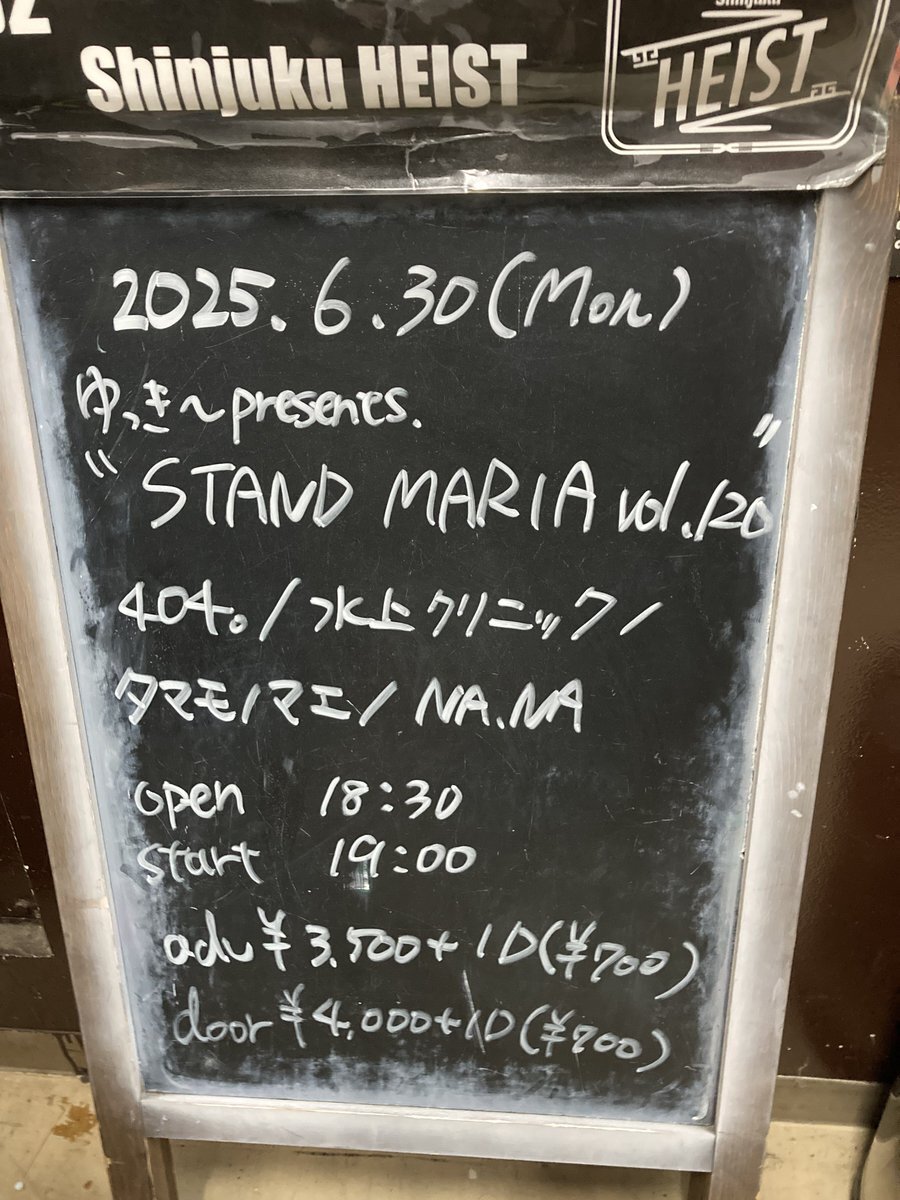 Shinjuku
HEIST
Shinjuku HEIST
2025.6.30(Mon)
ゆっき〜presents.
"STAND MARIA vol.120"
404。/水上クリニック/
タマモノマエ/NA.NA
open 18:30
start 19:00
adv ¥3.500+1D(¥700)
door ¥4,000+1D(¥700)